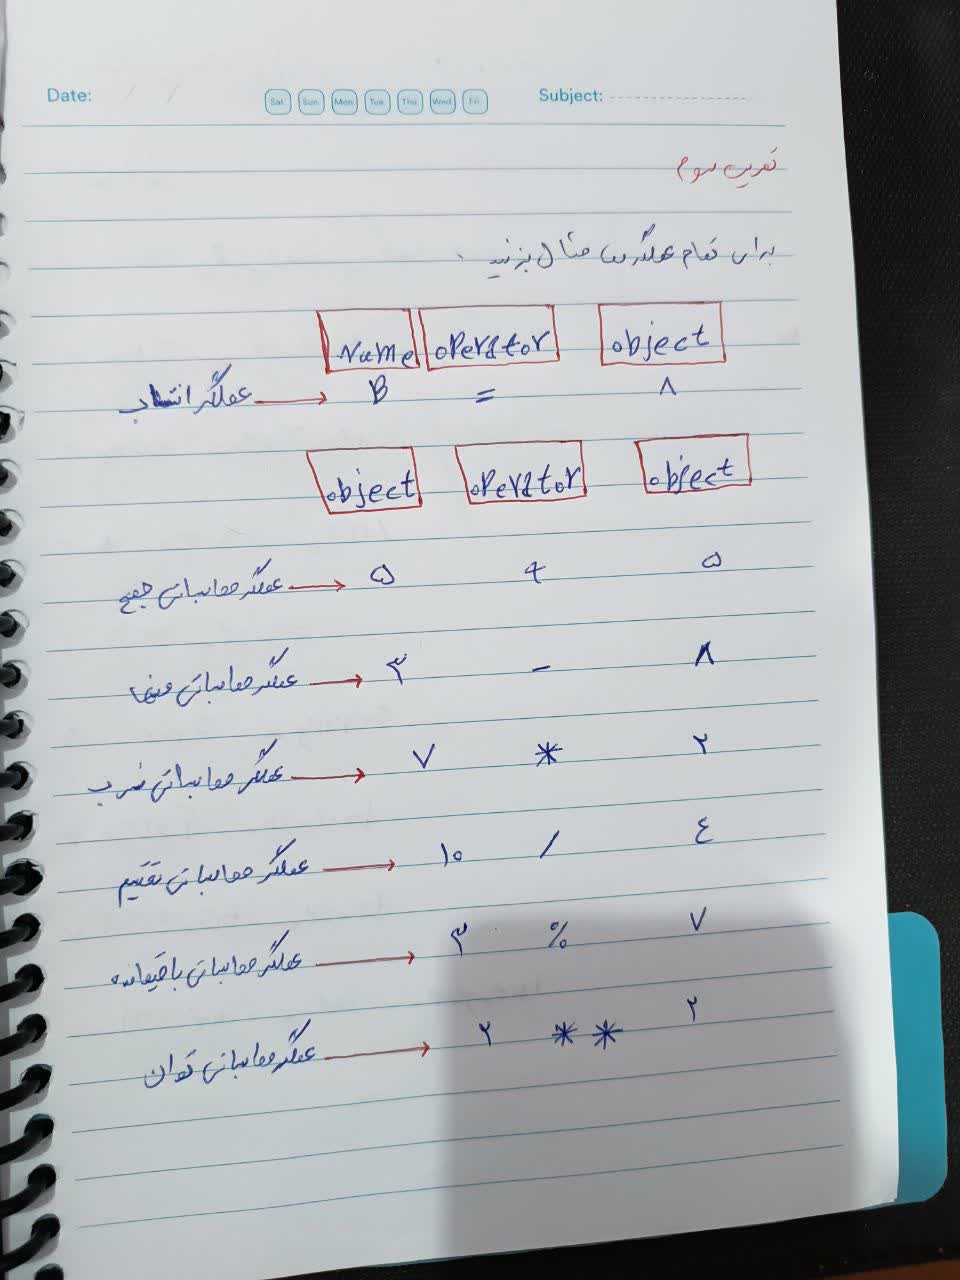 Date: / / Sat. Sun. Mon. Tue. Thu. Wed. Fri. Subject:
تمرین سوم
برای تمام عملگرها مثال بزنید.
Name operator object
عملگر انتساب → B = ۸
object operator object
عملگر محاسباتی جمع → ۵ + ۵
عملگر محاسباتی منها → ۳ - ۸
عملگر محاسباتی ضرب → ۷ * ۲
عملگر محاسباتی تقسیم → ۱۰ / ٤
عملگر محاسباتی باقیمانده → ۳ % ۷
عملگر محاسباتی توان → ۲ ** ۲